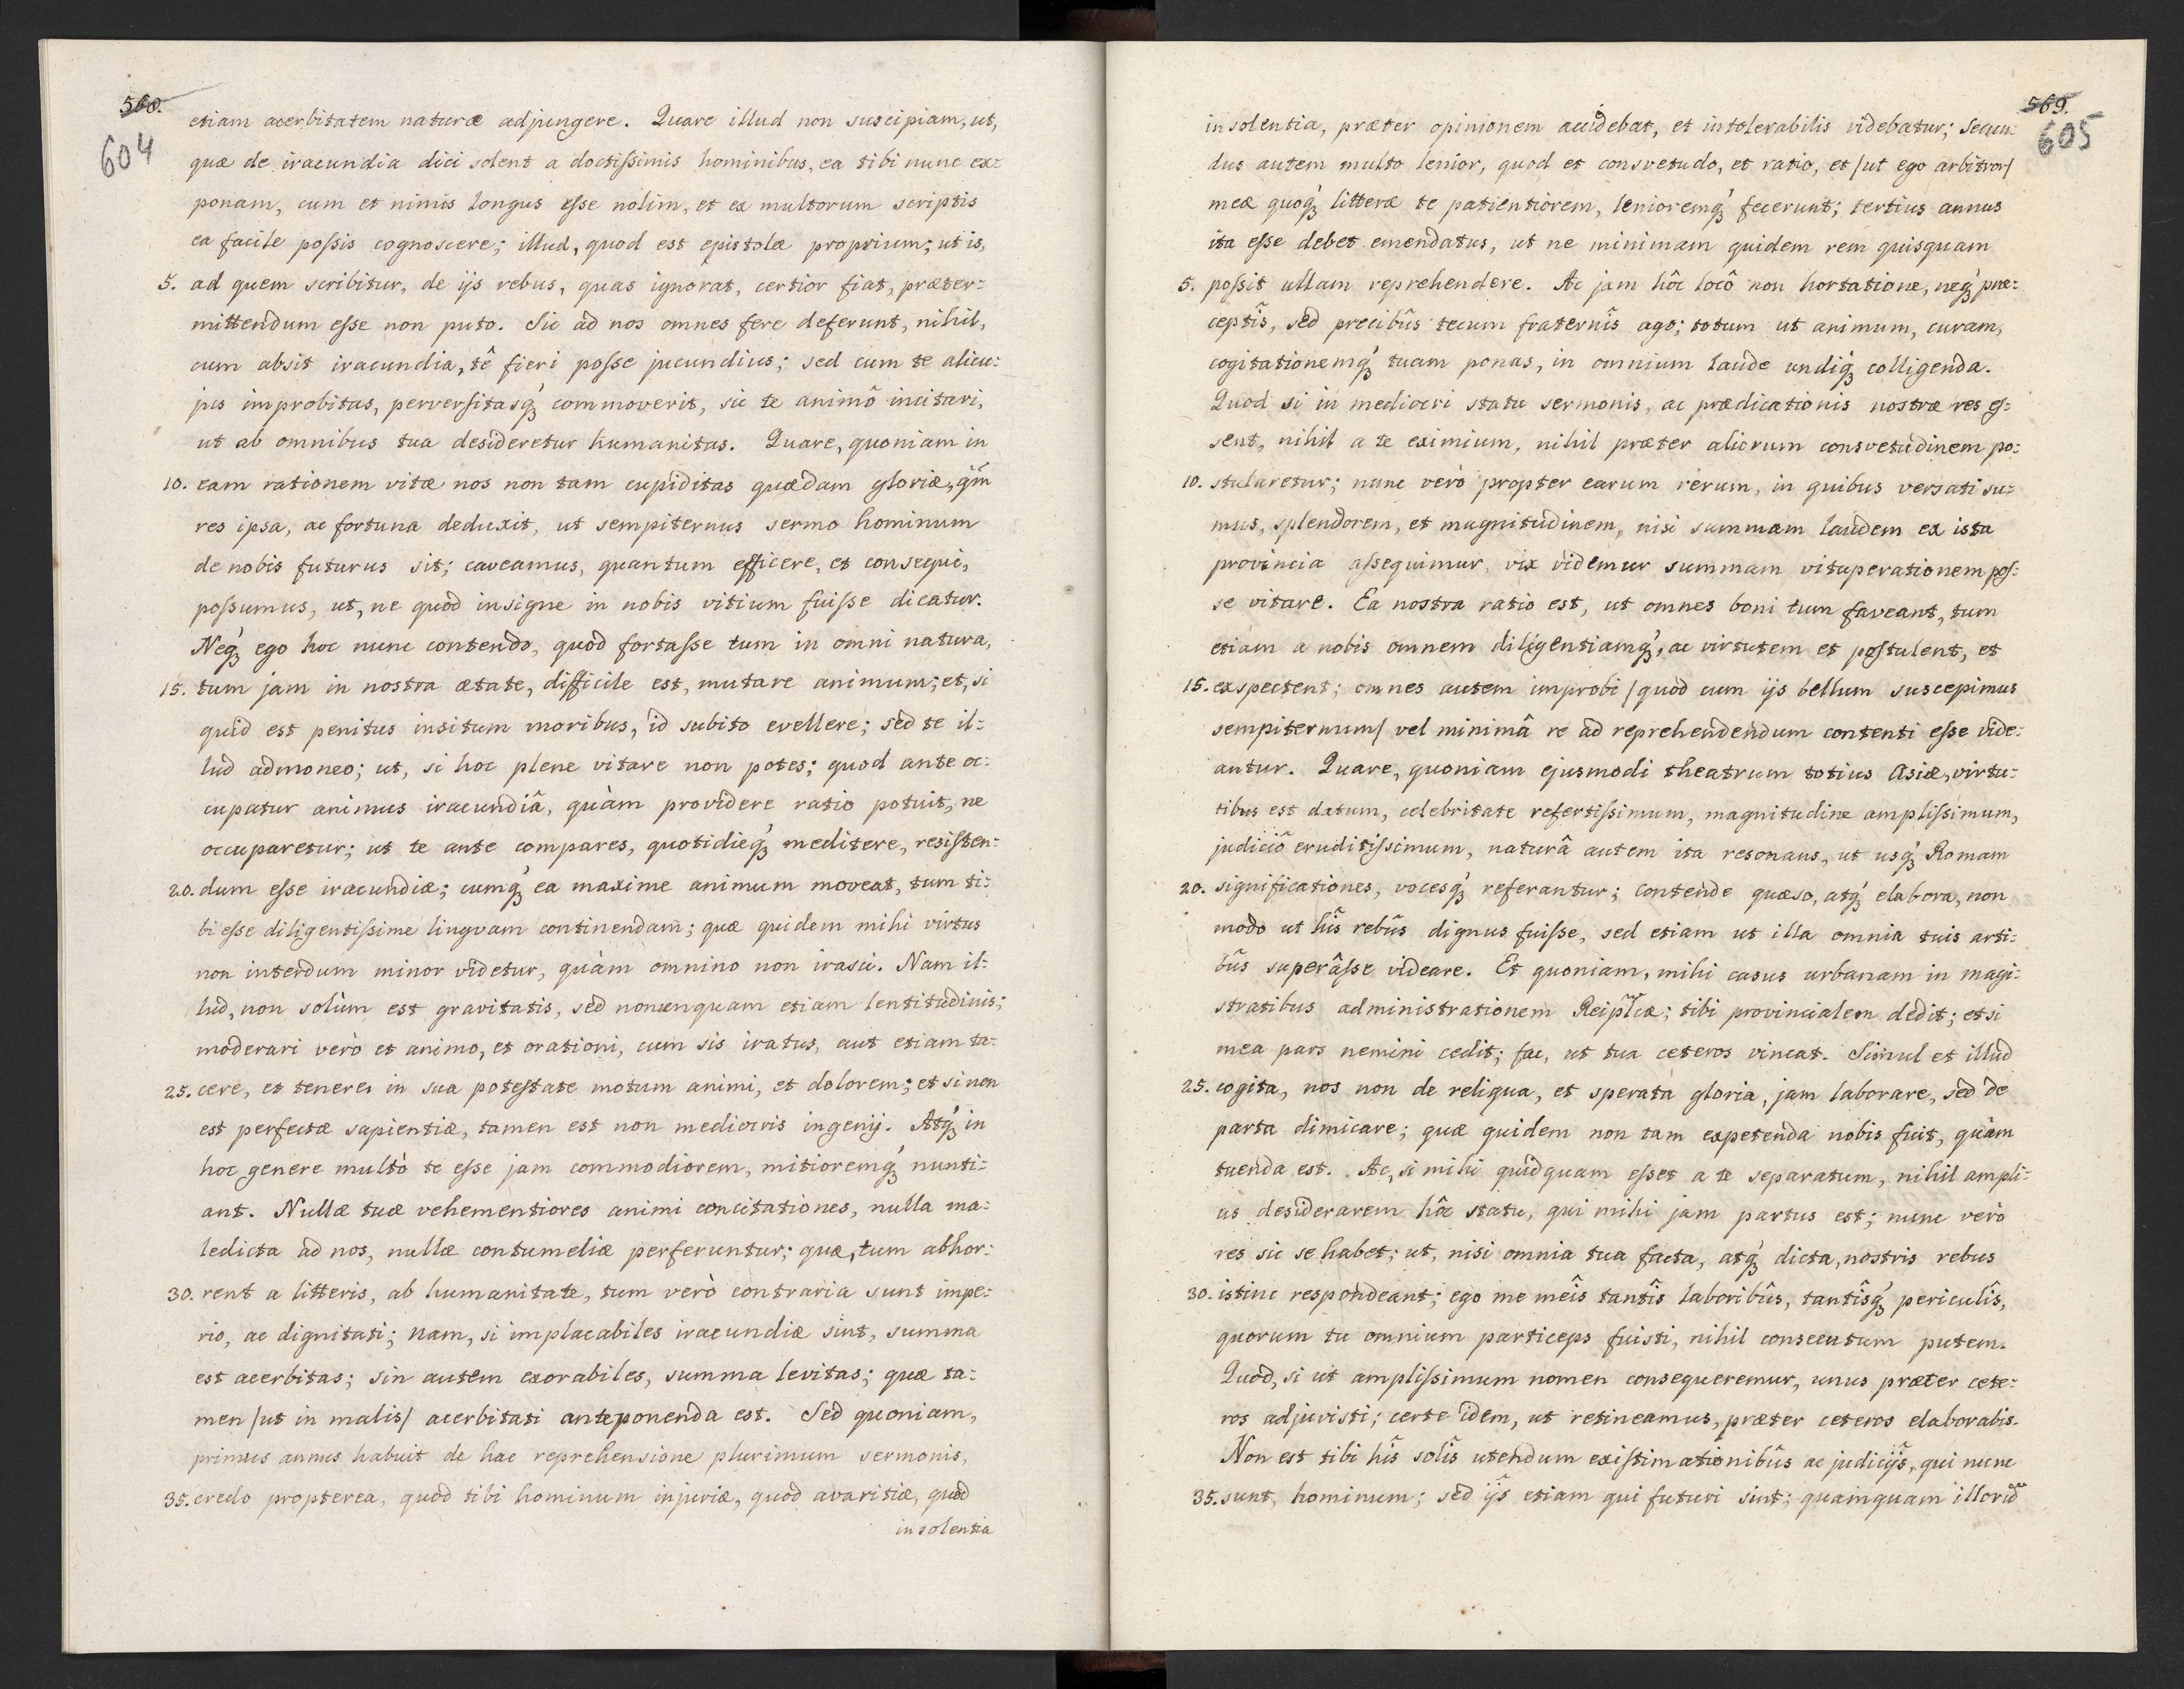 568.
604
etiam acerbitatem naturæ adjungere. Quare illud non suscipiam, ut,
quæ de iracundia dici solent a doctißimis hominibus, ea tibi nunc ex=
ponam, cum et nimis longus eße nolim, et ex multorum scriptis
ea facile poßis cognoscere; illud, quod est epistolæ proprium; ut is,
5. ad quem scribitur, de ijs rebus, quas ignorat, certior fiat, præter=
mittendum eße non puto. Sic ad nos omnes fere deferunt, nihil,
cum absit iracundia, tê fieri poße jucundius; sed cum te alicu=
jus improbitas, perversitasq́ꝫ commoverit, sic te animô incitari,
ut ab omnibus tua desideretur humanitas. Quare, quoniam in
10. eam rationem vitæ nos non tam cupiditas quædam gloriæ, qm̃
res ipsa, ac fortuna deduxit, ut sempiternus sermo hominum
de nobis futurus sit; caveamus, quantum efficere, et consequi,
poßumus, ut, ne quod insigne in nobis vitium fuiße dicatur.
Neq́ꝫ ego hoc nunc contendo, quod fortaße tum in omni natura,
15. tum jam in nostra ætate, difficile est, mutare animum; et, si
quid est penitus insitum moribus, id subito evellere; sed te il=
lud admoneo; ut, si hoc plene vitare non potes; quod ante oc=
cupatur animus iracundiâ, quàm providere ratio potuit, ne
occuparetur; ut te ante compares, quotidieq́ꝫ meditere, resisten=
20. dum eße iracundiæ; cumq́ꝫ ea maxime animum moveat, tum ti=
bi eße diligentißime lingvam continendam; quæ quidem mihi virtus
non interdum minor videtur, quàm omnino non irasci. Nam il=
lud, non solùm est gravitatis, sed nonunquam etiam lentitudinis;
moderari verò et animo, et orationi, cum sis iratus, aut etiam ta=
25. cere, et tenere, in sua potestate motum animi, et dolorem; et si non
est perfectæ sapientiæ, tamen est non mediocris ingenij. Atq́ꝫ in
hoc genere multò te eße jam commodiorem, mitioremq́ꝫ nunti=
ant. Nullæ tuæ vehementiores animi concitationes, nulla ma=
ledicta ad nos, nullæ contumeliæ perferuntur; quæ, tum abhor=
30. rent a litteris, ab humanitate, tum verò contraria sunt impe=
rio, ac dignitati; nam, si implacabiles iracundiæ sint, summa
est acerbitas; sin autem exorabiles, summa levitas; quæ ta=
men /ut in malis/ acerbitati anteponenda est. Sed quoniam,
primus annus habuit de hac reprehensione plurimum sermonis,
35. credo propterea, quod tibi hominum injuriæ, quod avaritiæ, quod
insolentia
569.
605
insolentia, præter opinionem accidebat, et intolerabilis videbatur; secun=
dus autem multo lenior, quod et consvetudo, et ratio, et /ut ego arbitror/
meæ quoq́ꝫ litteræ te patientiorem, lenioremq́ꝫ fecerunt; tertius annus
ita eße debet emendatus, ut ne minimam quidem rem quisquam
5. poßit ullam reprehendere. Ac jam hôc locô non hortatione, neq́ꝫ præ=
ceptîs, sed precibûs tecum fraternîs ago; totum ut animum, curam,
cogitationemq́ꝫ tuam ponas, in omnium laude undiq́ꝫ colligenda.
Quod si in mediocri statu sermonis, ac prædicationis nostræ res eſ=
sent, nihil a te eximium, nihil præter aliorum consvetudinem po=
10. stularetur; nunc verò propter earum rerum, in quibus versati su=
mus, splendorem, et magnitudinem, nisi summam laudem ex ista
provincia aßequimur, vix videmur summam vituperationem poſ=
se vitare. Ea nostra ratio est, ut omnes boni tum faveant, tum
etiam a nobis omnem diligentiamq́ꝫ, ac virtutem et postulent, et
15. exspectent; omnes autem improbi /quod cum ijs bellum suscepimus
sempiternum/ vel minimâ re ad reprehendendum contenti eße vide=
antur. Quare, quoniam ejusmodi theatrum totius Asiæ, virtu=
tibus est datum, celebritate refertißimum, magnitudine amplißimum,
judiciô eruditißimum, naturâ autem ita resonans, ut usq́ꝫ Romam
20. significationes, vocesq́ꝫ referantur; contende quæso, atq́ꝫ elabora, non
modo ut hîs rebûs dignus fuiße, sed etiam ut illa omnia tuis arti=
bûs superâße videare. Et quoniam, mihi casus urbanam in magi=
stratibus administrationem Reiplĩcæ; tibi provincialem dedit; et si
mea pars nemini cedit; fac, ut tua ceteros vincat. Simul et illud
25. cogita, nos non de reliqua, et sperata gloria, jam laborare, sed de
parta dimicare; quæ quidem non tam expetenda nobis fuit, quàm
tuenda est. Ac, si mihi quidquam eßet a te separatum, nihil ampli=
us desiderarem hôc statu, qui mihi jam partus est; nunc verò
res sic se habet; ut, nisi omnia tua facta, atq́ꝫ dicta, nostris rebus
30. istinc respondeant; ego me meîs tantîs laboribûs, tantîsq́ꝫ periculîs,
quorum tu omnium particeps fuisti, nihil consecutum putem.
Quod, si ut amplißimum nomen consequeremur, unus præter cete=
ros adjuvisti; certe idem, ut retineamus, præter ceteros elaborabis.
Non est tibi hîs solîs utendum existimationibûs ac judicijs, qui nunc
35. sunt, hominum; sed ijs etiam qui futuri sint; quamquam illorũ